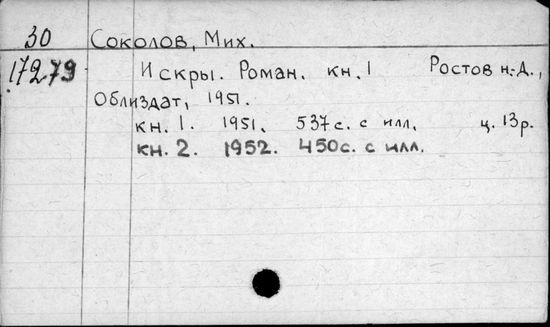 30 Соколов, Мих.
17279 Искры. Роман. кн. 1 Ростов н.-Д.,
Облиздат, 1951.
кн. 1. 1951. 537с. с илл. ц. 13р.
кн. 2. 1952. 450с. с илл.